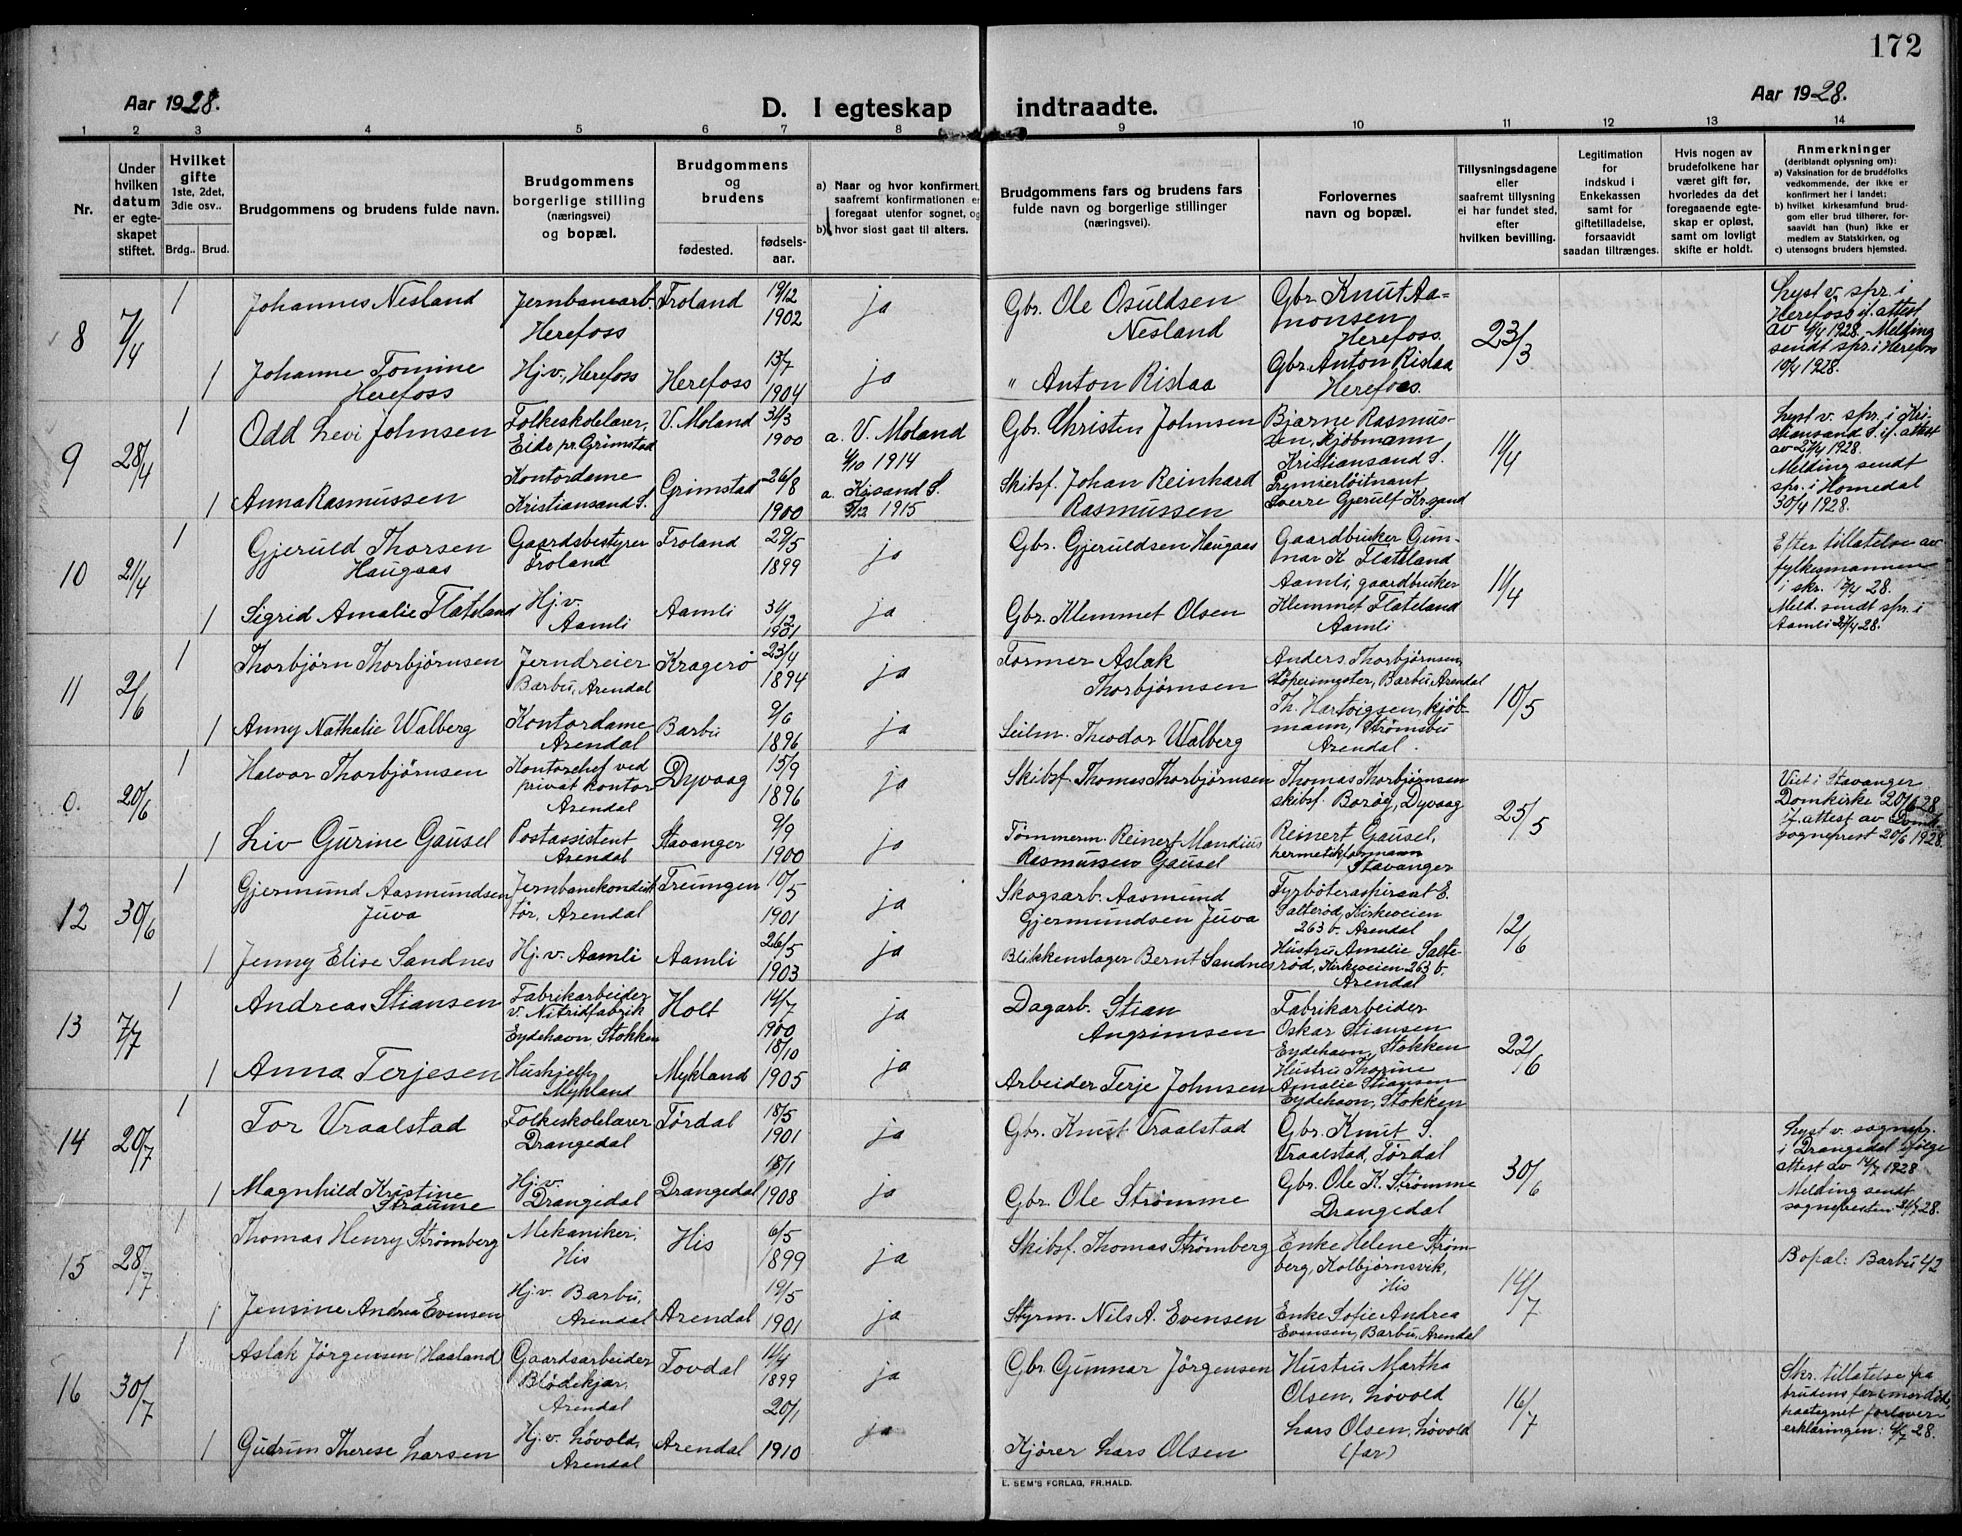 172
Aar 1928.
D. I egteskap indtraadte.
Aar 1928.
1 2 3 4 5 6 7 8 9 10 11 12 13 14
Nr.
Under hvilken datum er egteskapet stiftet.
Hvilket gifte
1ste, 2det, 3die osv..
Brdg.. Brud.
Brudgommens og brudens fulde navn.
Brudgommens
borgerlige stilling
(næringsvei)
og bopæl.
Brudgommens
og
brudens
fødested.
fødsels-
aar.
a) Naar og hvor konfirmert,
saafremt konfirmationen er
foregaat utenfor sognet, og
b) hvor sidst gaat til alters.
Brudgommens fars og brudens fars
fulde navn og borgerlige stillinger
(næringsvei).
Forlovernes
navn og bopæl.
Tillysningsdagene
eller
saafremt tillysning
ei har fundet sted,
efter
hvilken bevilling.
Legitimation
for
indskud i
Enkekassen
samt for
giftetilladelse,
forsaavidt
saadan tiltrænges.
Hvis nogen av
brudefolkene har
været gift før,
hvorledes da det
foregaaende egte-
skap er opløst,
samt om lovligt
skifte er holdt.
Anmerkninger
(deriblandt oplysning om):
a) Vaksination for de brudefolks
vedkommende, der ikke er
konfirmert her i landet;
b) hvilket kirkesamfund brud-
gom eller brud tilhører, for-
saavidt han (hun) ikke er
medlem av Statskirken, og
c) utensogns bruders hjemsted.
8 7/4 1 Johannes Nesland
Jernbanearb.
Herefoss
Froland
19/12
1902
ja
Gbr. Ole Osuldsen
Nesland
Gbr. Knut Aa-
monsen
Herefoss.
23/3
Lyst v. spr. i
Herefoss if. attest
av 4/4 1928. Melding
sendt spr. i Herefoss
10/4 1928.
1 Johanne Tomine
Herefoss
Hj.v., Herefoss
Herefoss
13/7
1904
ja
" Anton Risdaa
Gbr. Anton Risdaa
Herefoss.
9 28/4 1 Odd Levi Johnsen
Folkeskolelærer,
Eide pr. Grimstad
V. Moland
31/3
1900
a. V. Moland
4/10 1914
Gbr. Christen Johnsen
Bjarne Rasmus-
sen, Kjøbmann
Kristiansand S.
11/4
Lyst v. spr. i Kri-
stiansand S. if. attest
av 27/4 1928.
Melding sendt
spr. i Homedal
30/4 1928.
1 Anna Rasmussen
Kontordame
Kristiansand S.
Grimstad
26/8
1900
a. Krsand S.
5/12 1915
Skibsf. Johan Reinhard
Rasmussen
Premierløitnant
Sverre Gjerulf Krsand
10 21/4 1 Gjeruld Thorsen
Haugaas
Gaardsbestyrer
Froland
Froland
29/5
1899
ja
Gbr. Gjeruldsen Haugaas
Gaardbruker Gun-
nar K Flateland
Aamli, gaardbruker
11/4
Efter tillatelse av
fylkesmannen
i skr. 17/4 28.
Meld. sendt spr. i
Aamli 27/4 28.
1 Sigrid Amalie Flateland
Hj.v.
Aamli
Aamli
31/12
1901
ja
Gbr. Klemmet Olsen
Klemmet Flateland
Aamli
11 2/6 1 Thorbjørn Thorbjørnsen
Jerndreier
Barbu, Arendal
Kragerø
23/4
1894
ja
Former Aslak
Thorbjørnsen
Anders Thorbjørnsen,
støperimester, Barbu, Arendal
10/5
1 Anny Nathalie Walberg
Kontordame
Arendal
Barbu
9/6
1896
ja
Seilm. Theodor Walberg
Th. Hartvigsen, kjøb-
mann, Strømsbu
Arendal.
0. 20/6 1 Halvor Thorbjørnsen
Kontorchef ved
privat kontor
Arendal
Dyvaag
15/9
1896
ja
Skibsf. Thomas Thorbjørnsen
Thomas Thorbjørnsen
skibsf. Borøy, Dyvaag
25/5
Viet i Stavanger
Domkirke 20/6 28
if. attest av Domk.
sogneprest 20/6 1928.
1 Liv Gurine Gausel
Postassistent
Arendal
Stavanger
9/9
1900
ja
Tømmerm. Reinert Mandius
Rasmussen Gausel
Reinert Gausel,
hermetikformann
Stavanger
12 30/6 1 Gjermund Aasmundsen
Juva
Jernbanekonduk
tør, Arendal
Treungen
10/5
1901
ja
Skogsarb. Aasmund
Gjermundsen Juva
Fyrbøteraspirant E.
Salterød, Kirkeveien
263 b. Arendal
12/6
1 Jenny Elise Sandnes
Hj.v. Aamli
Aamli
26/5
1903
ja
Blikkenslager Bernt Sandnes
Hustru Amalie Salte-
rød, Kirkeveien 263 b,
Arendal
13 7/7 1 Andreas Stiansen
Fabrikarbeider
v. Nitridfabrik
Eydehavn, Stokken
Holt
14/7
1900
ja
Dagarb. Stian
Angrimsen
Fabrikarbeider
Oskar Stiansen
Eydehavn, Stokken
22/6
1 Anna Terjesen
Hushjelp
Mykland
Mykland
18/10
1905
ja
Arbeider Terje Johnsen
Hustru Thorine
Amalie Stiansen
Eydehavn, Stokken
14 20/7 1 Tor Vraalstad
Folkeskolelærer
Drangedal
Tørdal
18/5
1901
ja
Gbr. Knut Vraalstad
Gbr. Knut S.
Vraalstad, Tørdal
30/6
Lyst v. sognepr.
i Drangedal ifølge
attest av 14/7 1928
Melding sendt
sognepresten 21/7 28.
1 Magnhild Kristine
Strømme
Hj.v.
Drangedal
Drangedal
18/1
1908
ja
Gbr. Ole Strømme
Gbr. Ole K. Strømme
Drangedal
15 28/7 1 Thomas Henry Strømberg
Mekaniker,
His
His
6/5
1899
ja
Skibsf. Thomas Strømberg
Enke Helene Strøm
berg, Kolbjørnsvik,
His
14/7
Bopæl: Barbu 42
1 Jensine Andrea Evensen
Hj.v. Barbu,
Arendal
Arendal
19/5
1901
ja
Styrm. Nils A. Evensen
Enke Sofie Andrea
Evensen, Barbu, Arendal
16 30/7 1 Aslak Jörgensen (Haaland)
Gaardsarbeider
Blødekjær,
Arendal
Tovdal
11/4
1899
ja
Gbr. Gunnar Jörgensen
Hustru Martha
Olsen, Løvold
16/7
Skr. tillatelse fra
brudens far
paategnet forlover
erklæringen: 4/7 28.
1 Gudrun Therese Larsen
Hj.v. Løvold,
Arendal
Arendal
20/1
1910
ja
Kjører Lars Olsen
Lars Olsen, Løvold
(far)
E. SEM'S FORLAG, FR.HALD.